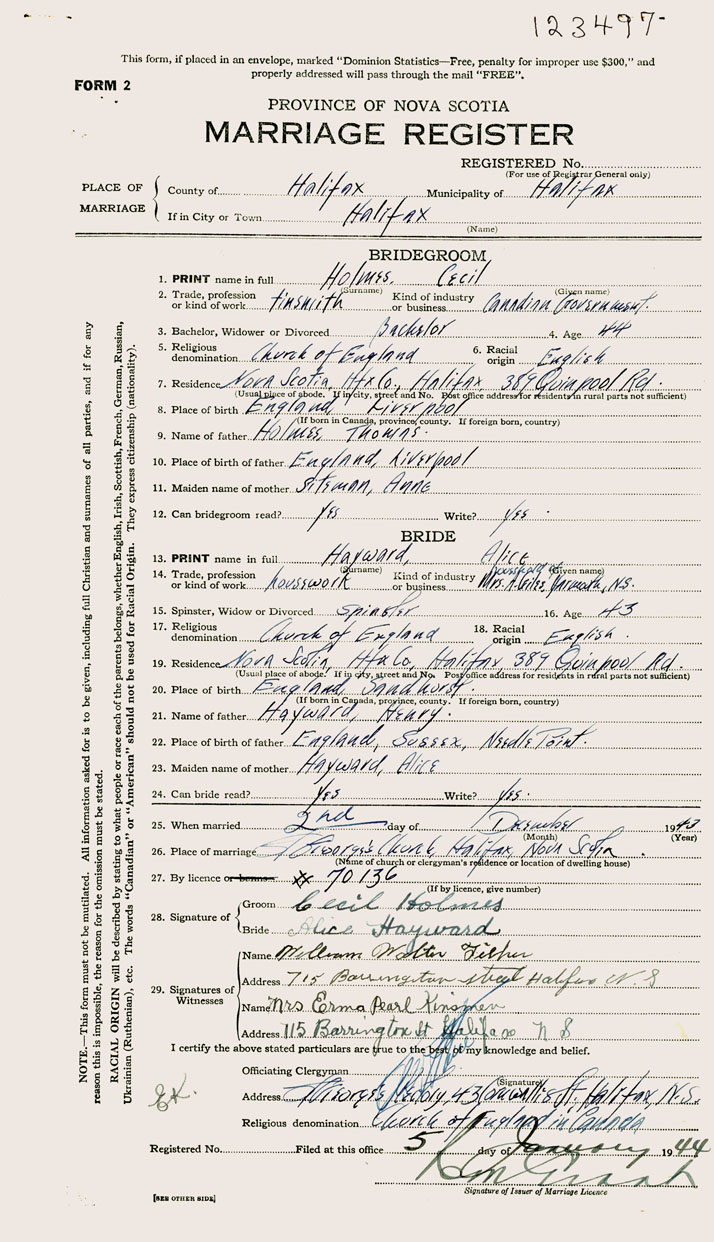 123497-
This form, if placed in an envelope, marked “Dominion Statistics—Free, penalty for improper use $300,” and
properly addressed will pass through the mail “FREE”.
FORM 2
PROVINCE OF NOVA SCOTIA
MARRIAGE REGISTER
REGISTERED No.
(For use of Registrar General only)
PLACE OF MARRIAGE
County of Halifax Municipality of Halifax
If in City or Town Halifax
(Name)
BRIDEGROOM
1. PRINT name in full Holmes, Cecil
(Surname) (Given name)
2. Trade, profession or kind of work tinsmith Kind of industry or business Canadian Government.
3. Bachelor, Widower or Divorced Bachelor 4. Age 44
5. Religious denomination Church of England 6. Racial origin English
7. Residence Nova Scotia, Hfx Co., Halifax 389 Quinpool Rd.
(Usual place of abode. If in city, street and No. Post office address for residents in rural parts not sufficient)
8. Place of birth England Liverpool
(If born in Canada, province, county. If foreign born, country)
9. Name of father Holmes, Thomas.
10. Place of birth of father England, Liverpool
11. Maiden name of mother Anne
12. Can bridegroom read? yes Write? yes.
BRIDE
13. PRINT name in full Hayward, Alice
(Surname) (Given name)
14. Trade, profession or kind of work housework Kind of industry or business household of Mrs. A. Giles, Yarmouth, N.S.
15. Spinster, Widow or Divorced Spinster 16. Age 43
17. Religious denomination Church of England 18. Racial origin English.
19. Residence Nova Scotia, Hfx Co, Halifax 389 Quinpool Rd.
(Usual place of abode. If in city, street and No. Post office address for residents in rural parts not sufficient)
20. Place of birth England, Sandhurst.
(If born in Canada, province, county. If foreign born, country)
21. Name of father Hayward, Henry.
22. Place of birth of father England, Sussex, Needle Point.
23. Maiden name of mother Hayward, Alice
24. Can bride read? yes Write? yes.
25. When married 2nd day of December 1943
(Month) (Year)
26. Place of marriage St George's Church, Halifax, Nova Scotia.
(Name of church or clergyman's residence or location of dwelling house)
27. By licence or banns 70136
(If by licence, give number)
28. Signature of
Groom Cecil Holmes
Bride Alice Hayward
29. Signatures of Witnesses
Name William Walter Fisher
Address 715 Barrington street Halifax N.S
Name Mrs Erma Pearl Kinsmen
Address 115 Barrington St Halifax N S
I certify the above stated particulars are true to the best of my knowledge and belief.
Officiating Clergyman
(Signature)
Address St George's St. Halifax, N.S.
Religious denomination Church of England in Canada
Registered No. Filed at this office 5 day of January 1944
Signature of Issuer of Marriage Licence
[SEE OTHER SIDE]
NOTE.—This form must not be mutilated. All information asked for is to be given, including full Christian and surnames of all parties, and if for any
reason this is impossible, the reason for the omission must be stated.
RACIAL ORIGIN will be described by stating to what people or race each of the parents belongs, whether English, Irish, Scottish, French, German, Russian,
Ukrainian (Ruthenian), etc. The words “Canadian” or “American” should not be used for Racial Origin. They express citizenship (nationality).